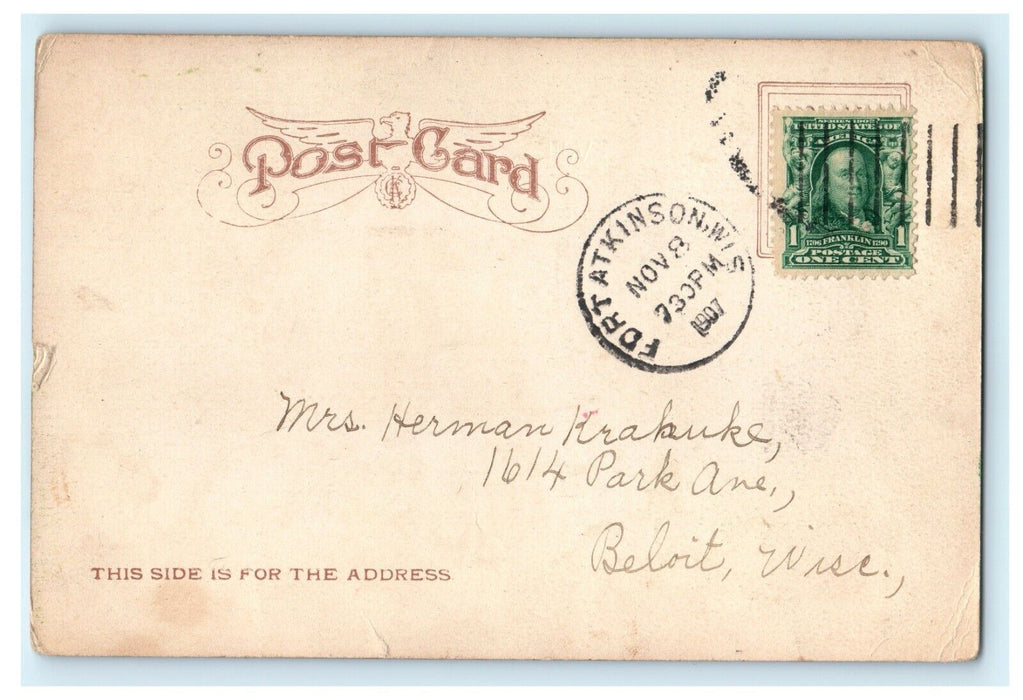 Post Card
SERIES 1902
UNITED STATES OF
AMERICA
1 1706 FRANKLIN 1790 1
POSTAGE
ONE CENT
FORT ATKINSON, WIS
NOV 8
730 PM
1907
Mrs. Herman Krabuke,
1614 Park Ave.,
Beloit, Wisc.,
THIS SIDE IS FOR THE ADDRESS